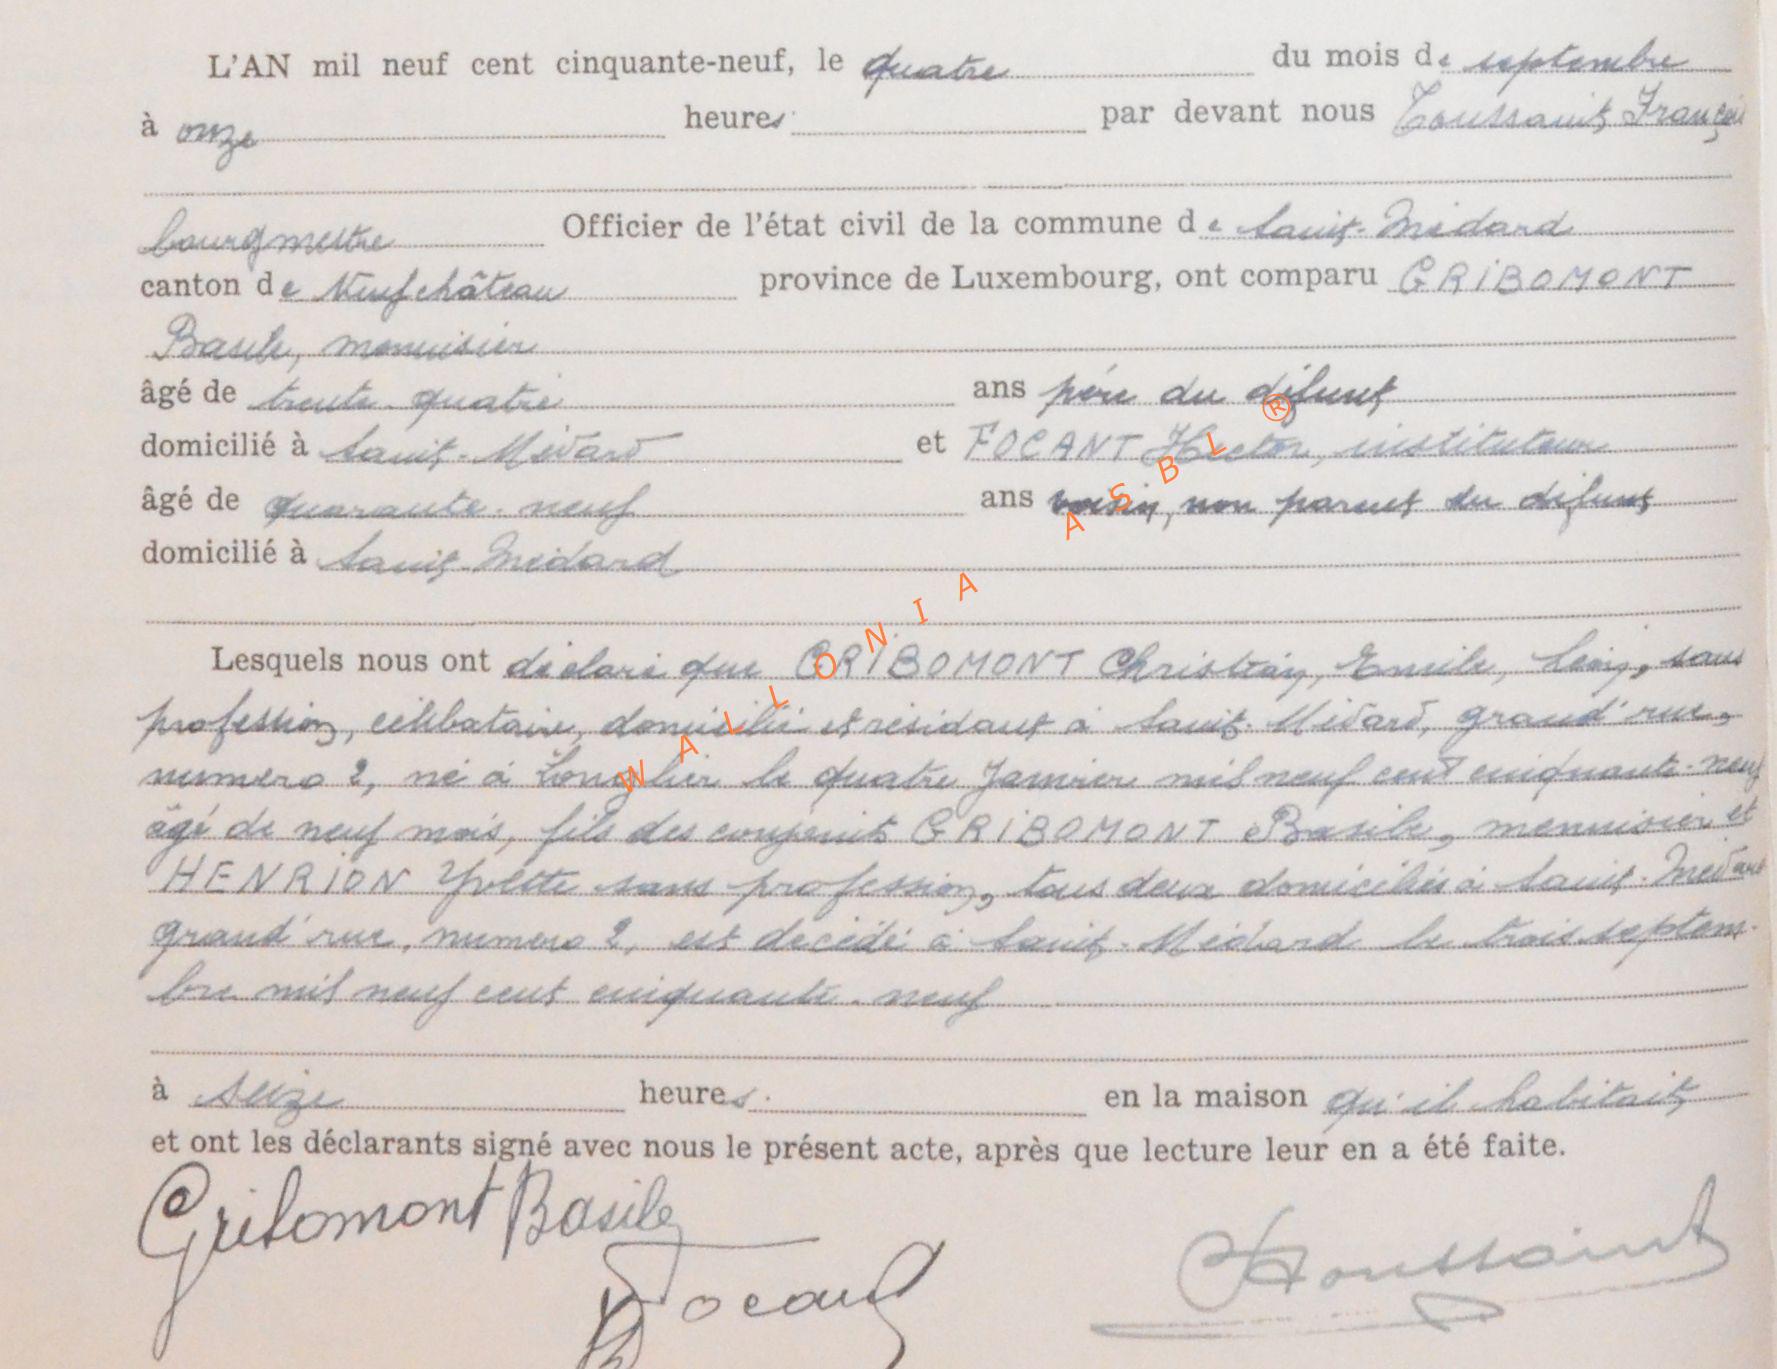 L'AN mil neuf cent cinquante-neuf, le quatre du mois de septembre
à onze heures par devant nous Toussaint, Françoi
bourgmestre Officier de l'état civil de la commune de Saint-Médard
canton de Neufchâteau province de Luxembourg, ont comparu GRIBOMONT
Basile, menuisier
âgé de trente-quatre ans père du défunt
domicilié à Saint-Médard et FOCANT Hector, instituteur
âgé de quarante-neuf ans voisin, non parent du défunt
domicilié à Saint-Médard
Lesquels nous ont déclaré que GRIBOMONT Christian, Emile, sans
profession, célibataire, domicilié et résidant à Saint-Médard, grand'rue,
numéro 2, né à Longlier le quatre Janvier mil neuf cent cinquante-neuf
âgé de neuf mois, fils des conjoints GRIBOMONT Basile, menuisier et
HENRION Yvette sans profession, tous deux domiciliés à Saint-Médard
grand'rue, numéro 2, est décédé à Saint-Médard le trois septem-
bre mil neuf cent cinquante-neuf
à seize heures. en la maison qu'il habitait
et ont les déclarants signé avec nous le présent acte, après que lecture leur en a été faite.
Gribomont Basile
Focant
Toussaint
WALLONIA ASBL ®